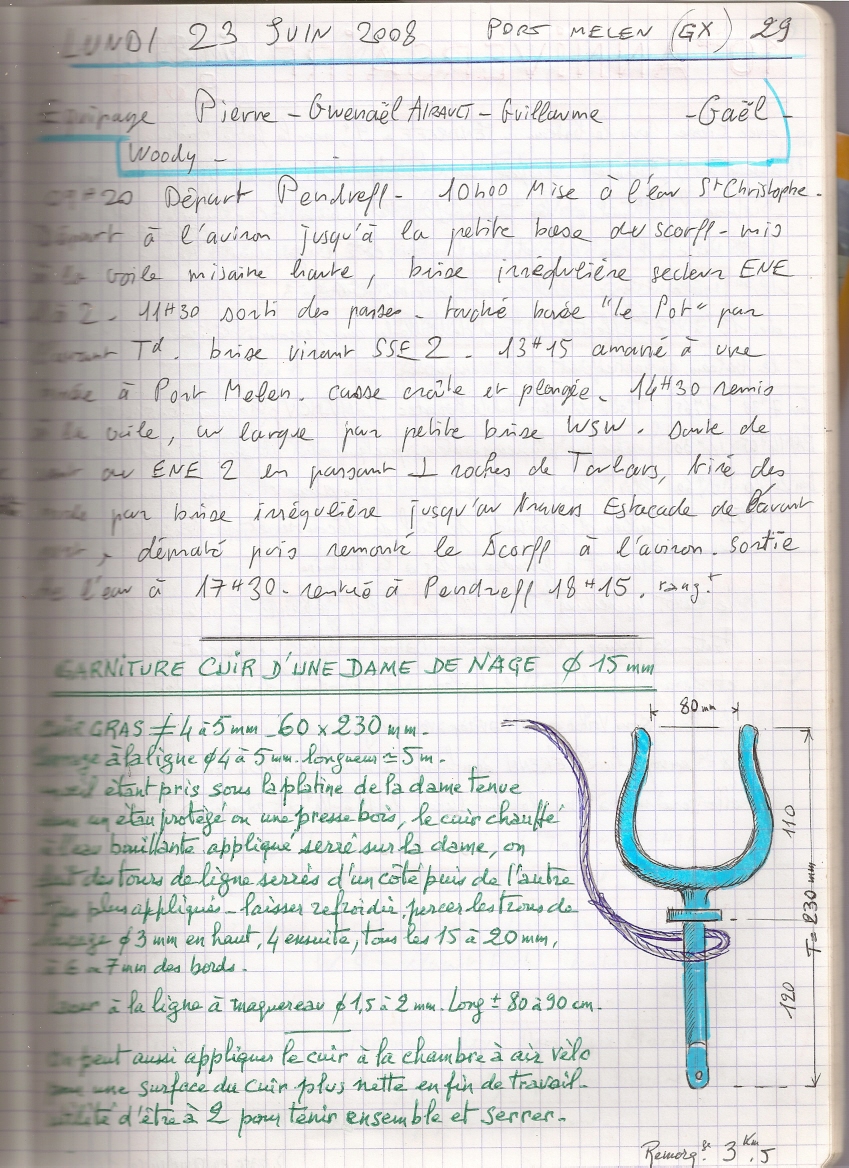 LUNDI 23 JUIN 2008 PORT MELEN (GX) 29
Equipage Pierre - Gwenaël AIRAULT - Guillaume - Gaël -
Woody -
09H20 Départ Pendreff - 10h00 Mise à l'eau St Christophe.
Départ à l'aviron jusqu'à la petite base du scorff - mis
à la voile misaine haute, brise irrégulière secteur ENE
à 2 - 11H30 sorti des passes - touché bouée "le Pot" par
Td. brise virant SSE 2 - 13H15 amarré à une
à Port Melen. casse croûte et plongée. 14H30 remis
à la voile, au largue par petite brise WSW. Saute de
au ENE 2 en passant ⊥ roches de Torhars, tiré des
par brise irrégulière jusqu'au travers Estacade de
, dématé puis remonté le Scorff à l'aviron. Sortie
de l'eau à 17H30 - rentré à Pendreff 18H15. rangt
GARNITURE CUIR D'UNE DAME DE NAGE ϕ 15 mm
CUIR GRAS ≠ 4 à 5 mm - 60 x 230 mm -
à la ligne ϕ 4 à 5 mm. longueur ≃ 5 m.
étant pris sous la platine de la dame tenue
un étau protégé ou une presse bois, le cuir chauffé
à l'eau bouillante appliqué serré sur la dame, on
fait des tours de ligne serrés d'un côté puis de l'autre
plus appliqués - laisser refroidir, percer les trous de
ϕ 3 mm en haut, 4 ensuite, tous les 15 à 20 mm,
à 6 ou 7 mm des bords.
à la ligne à maquereau ϕ 1,5 à 2 mm. Long ± 80 à 90 cm.
On peut aussi appliquer le cuir à la chambre à air vélo
une surface du cuir plus nette en fin de travail.
d'être à 2 pour tenir ensemble et serrer.
80 mm
110
T = 230 mm
120
Remorqge : 3 Km,5